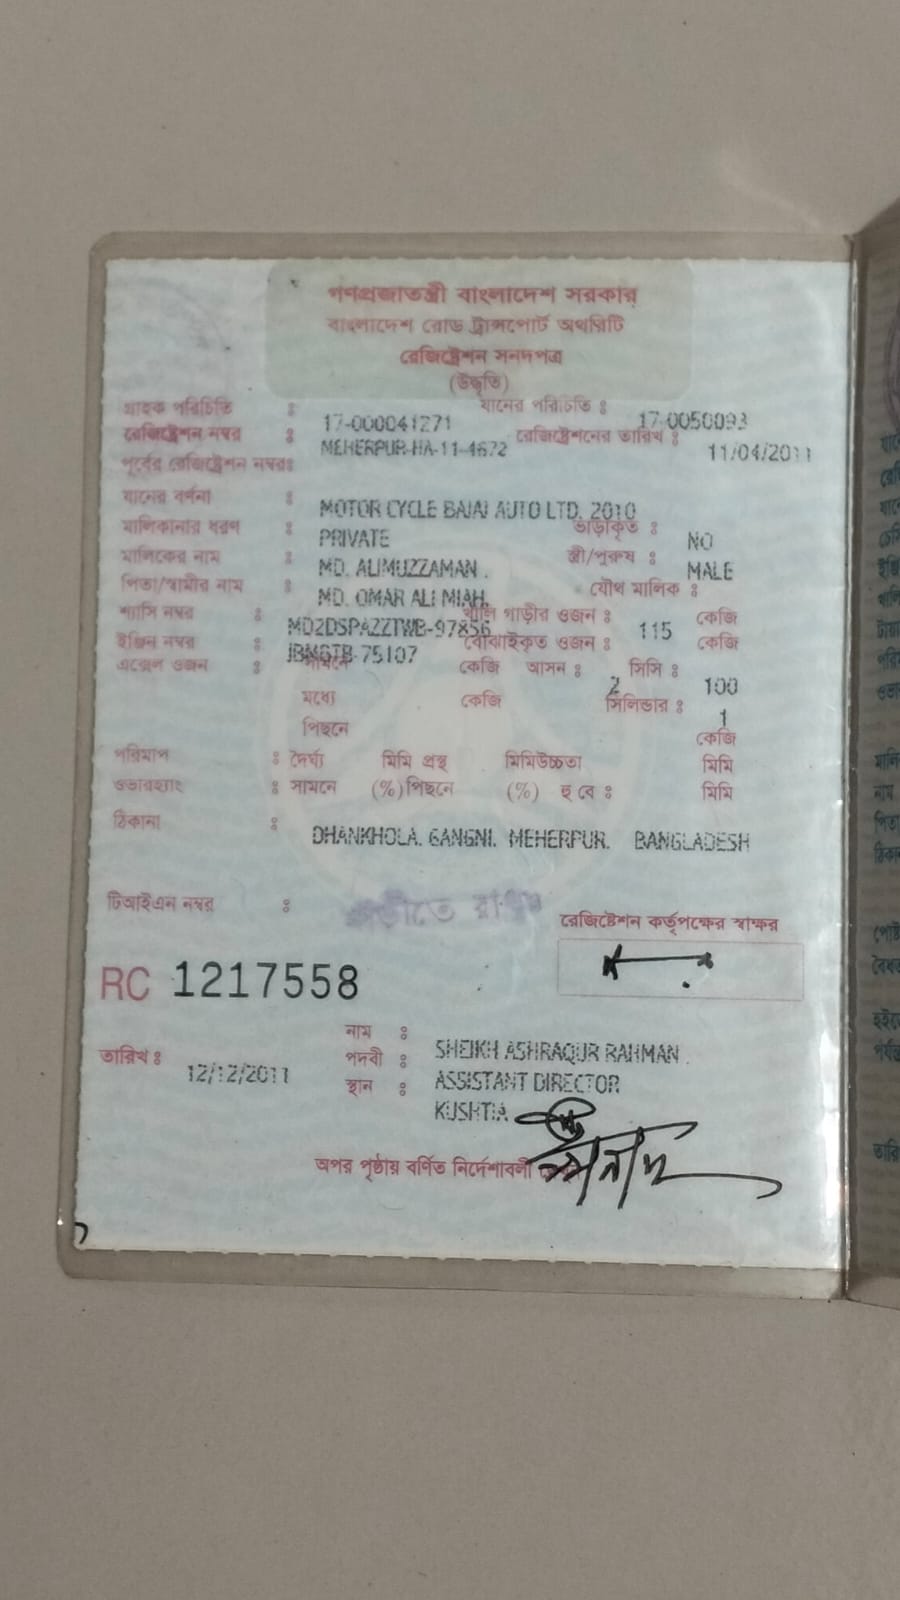 গণপ্রজাতন্ত্রী বাংলাদেশ সরকার
বাংলাদেশ রোড ট্রান্সপোর্ট অথরিটি
রেজিষ্ট্রেশন সনদপত্র
(উদ্ধৃতি)
গ্রাহক পরিচিতি : 17-000041271 যানের পরিচিতি : 17-0050093
রেজিষ্ট্রেশন নম্বর : MEHERPUR-HA-11-4672 রেজিষ্ট্রেশনের তারিখ : 11/04/2011
পূর্বের রেজিষ্ট্রেশন নম্বরঃ
যানের বর্ণনা : MOTOR CYCLE BAJAJ AUTO LTD. 2010
মালিকানার ধরণ : PRIVATE ভাড়াকৃত : NO
মালিকের নাম : MD. ALIMUZZAMAN . স্ত্রী/পুরুষ : MALE
পিতা/স্বামীর নাম : MD. OMAR ALI MIAH. যৌথ মালিক :
শ্যাসি নম্বর : MD2DSPAZZTWB-97856 খালি গাড়ীর ওজন : 115 কেজি
ইঞ্জিন নম্বর : JBMBTB-75107 বোঝাইকৃত ওজন : কেজি
এক্সেল ওজন : সামনে কেজি আসন : 2 সিসি : 100
মধ্যে কেজি সিলিন্ডার : 1
পিছনে কেজি
পরিমাপ : দৈর্ঘ্য মিমি প্রস্থ মিমিউচ্চতা মিমি
ওভারহ্যাং : সামনে (%) পিছনে (%) হু বে : মিমি
ঠিকানা : DHANKHOLA. GANGNI. MEHERPUR. BANGLADESH
টিআইএন নম্বর :
রেজিষ্টেশন কর্তৃপক্ষের স্বাক্ষর
RC 1217558
নাম : SHEIKH ASHRAQUR RAHMAN .
তারিখ : 12/12/2011 পদবী : ASSISTANT DIRECTOR
স্থান : KUSHTIA
অপর পৃষ্ঠায় বর্ণিত নির্দেশাবলী